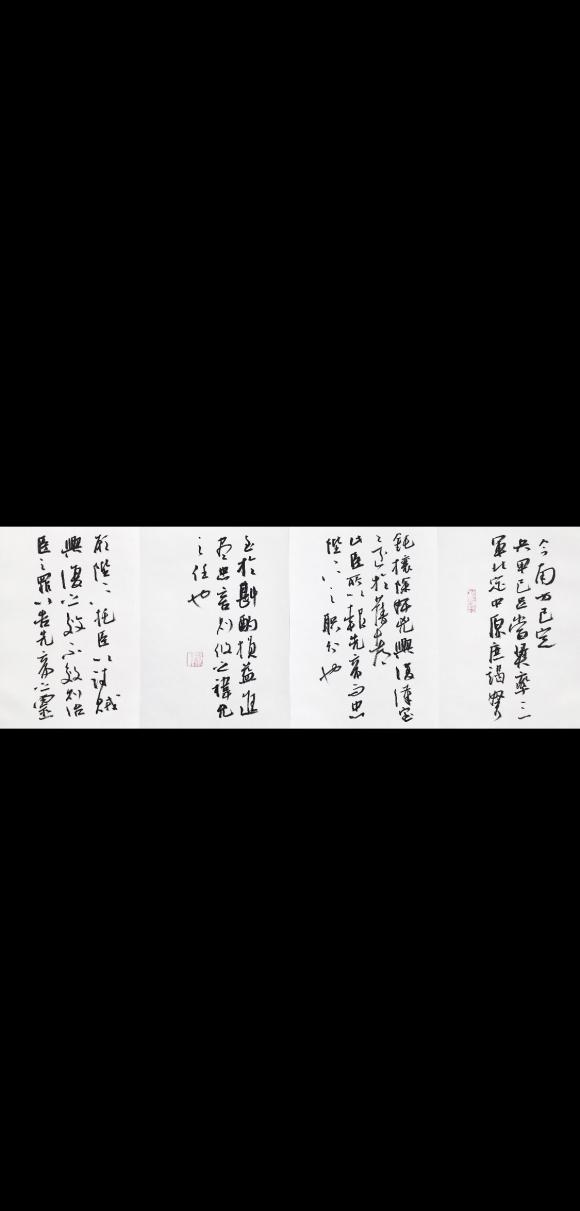 今南方已定
兵甲已足當獎率三
軍北定中原庶竭駑
鈍攘除奸凶興復漢室
還於舊都
此臣所以報先帝而忠
陛下之職分也
至於斟酌損益進
盡忠言則攸之禕允
之任也
願陛下托臣以討賊
興復之效不效則治
臣之罪以告先帝之靈